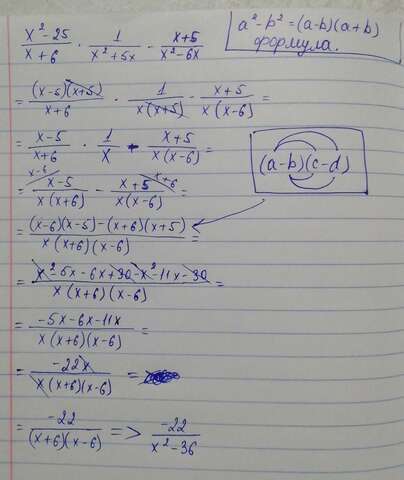 x² - 25 / x + 6 · 1 / x² + 5x - x + 5 / x² - 6x
a² - b² = (a-b)(a+b)
формула.
= (x-5)(x+5) / x+6 · 1 / x(x+5) - x+5 / x(x-6) =
= x-5 / x+6 · 1 / x - x+5 / x(x-6) =
(a-b)(c-d)
= x-6 x-5 / x(x+6) - x+5 x+6 / x(x-6) =
= (x-6)(x-5)-(x+6)(x+5) / x(x+6)(x-6) =
= x²-5x-6x+30-x²-11x-30 / x(x+6)(x-6) =
= -5x-6x-11x / x(x+6)(x-6) =
= -22x / x(x+6)(x-6) =
= -22 / (x+6)(x-6) => -22 / x²-36